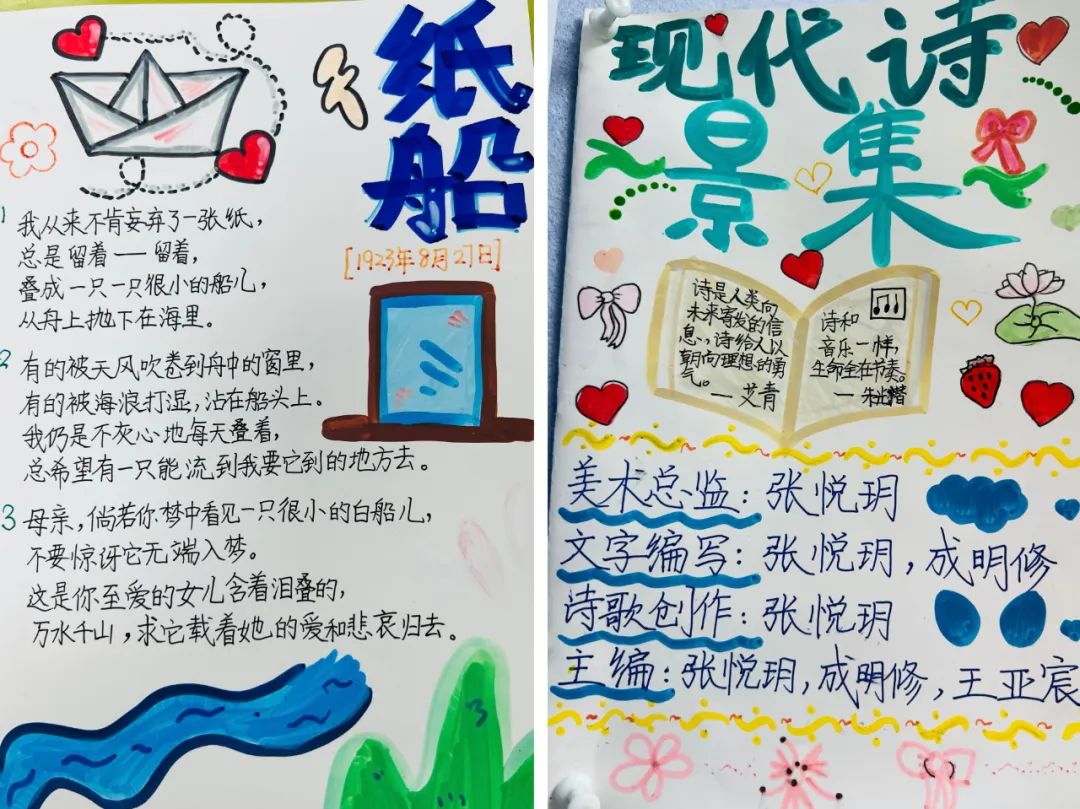 纸
船
[1923年8月27日]
1 我从来不肯妄弃了一张纸，
总是留着——留着，
叠成一只一只很小的船儿，
从舟上抛下在海里。
2 有的被天风吹卷到舟中的窗里，
有的被海浪打湿，沾在船头上。
我仍是不灰心地每天叠着，
总希望有一只能流到我要它到的地方去。
3 母亲，倘若你梦中看见一只很小的白船儿，
不要惊讶它无端入梦。
这是你至爱的女儿含着泪叠的，
万水千山，求它载着她的爱和悲哀归去。
现代诗
景集
诗是人类向
未来寄发的信
息，诗给人以
朝向理想的勇
气。
—艾青
诗和
音乐一样，
生命全在节奏。
—朱光潜
美术总监：张悦玥
文字编写：张悦玥，成明修
诗歌创作：张悦玥
主编：张悦玥，成明修，王亚宸